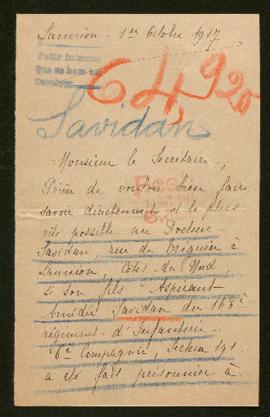 Lannion. 1er Octobre 1917
64,920
Savidan
Monsieur le Secrétaire,
Prière de vouloir bien faire
savoir directement et le plus
vite possible au Docteur
Savidan, rue de Tréguier à
Lannion, Côtes du Nord,
si son fils Aspirant
Amédée Savidan du
régiment d'Infanterie
6e Compagnie, Secteur 191
a été fait prisonnier à